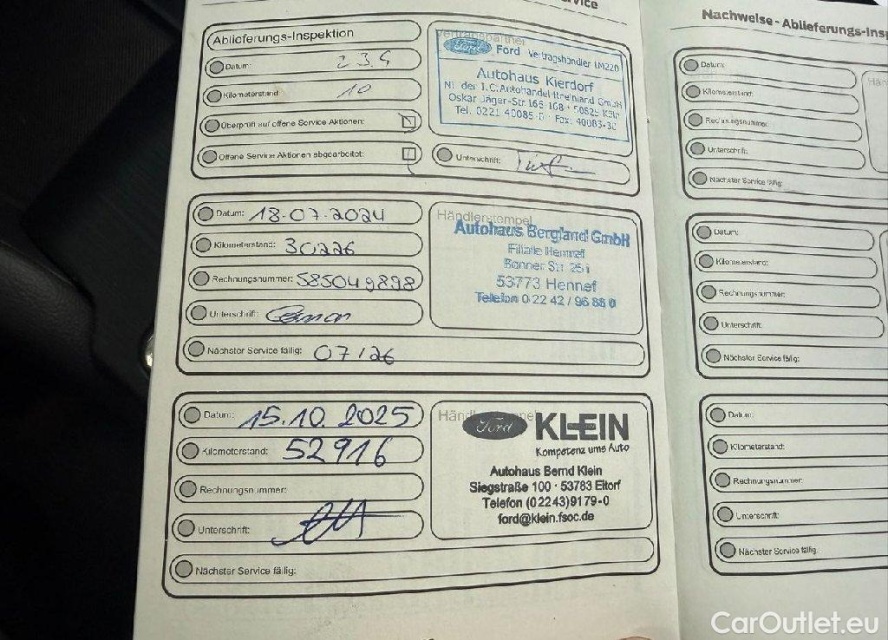 Service
Nachweise - Ablieferungs-Ins
Ablieferungs-Inspektion
Datum: 23.4
Kilometerstand: 10
Überprüft auf offene Service Aktionen:
Offene Service Aktionen abgearbeitet:
Unterschrift:
Ford Vertragshändler
Autohaus Kierdorf
NL der J.C. Autohandel Rheinland GmbH
Oskar-Jäger-Str. 166-168 · 50825 Köln
Tel. 0221 40085-0 · Fax: 40083-30
Datum: 18.07.2024
Kilometerstand: 30226
Rechnungsnummer: 585049898
Unterschrift:
Nächster Service fällig: 07/26
Händlerstempel
Autohaus Bergland GmbH
Filiale Hennef
Bonner Str.
53773 Hennef
Telefon 0 22 42 / 96 88 0
Datum: 15.10.2025
Kilometerstand: 52916
Rechnungsnummer:
Unterschrift:
Nächster Service fällig:
Ford KLEIN
Kompetenz ums Auto
Autohaus Bernd Klein
Siegstraße 100 · 53783 Eitorf
Telefon (02243)9179-0
ford@klein.fsoc.de
Datum:
Kilometerstand:
Rechnungsnummer:
Unterschrift:
Nächster Service fällig:
Datum:
Kilometerstand:
Rechnungsnummer:
Unterschrift:
Nächster Service fällig:
Datum:
Kilometerstand:
Rechnungsnummer:
Unterschrift:
Nächster Service fällig:
CarOutlet.eu